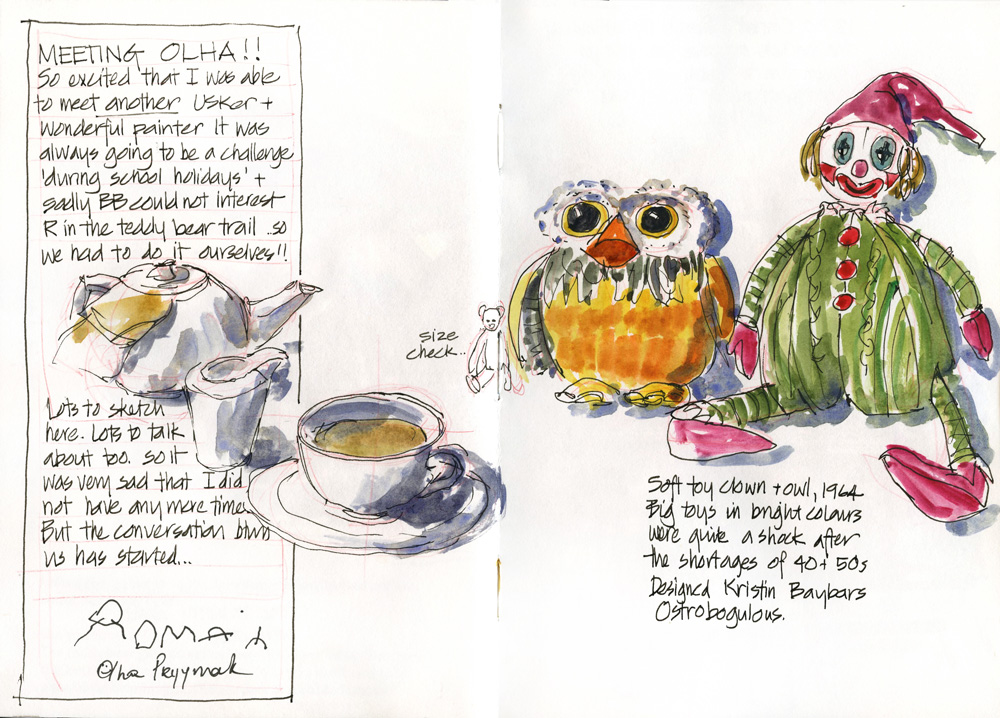 MEETING OLHA!!
So excited that I was able
to meet another USKer +
wonderful painter It was
always going to be a challenge
'during school holidays' +
sadly BB could not interest
R in the teddy bear trail .so
we had to do it ourselves!!
Lots to sketch
here. Lots to talk
about too. so it
was very sad that I did
not have any more time.
But the conversation btwn
us has started...
Olha Pryymak
size
check..
Soft toy clown + owl, 1964
Big toys in bright colours
were quite a shock after
the shortages of 40 + 50s
Designed Kristin Baybars
Ostrobogulous.